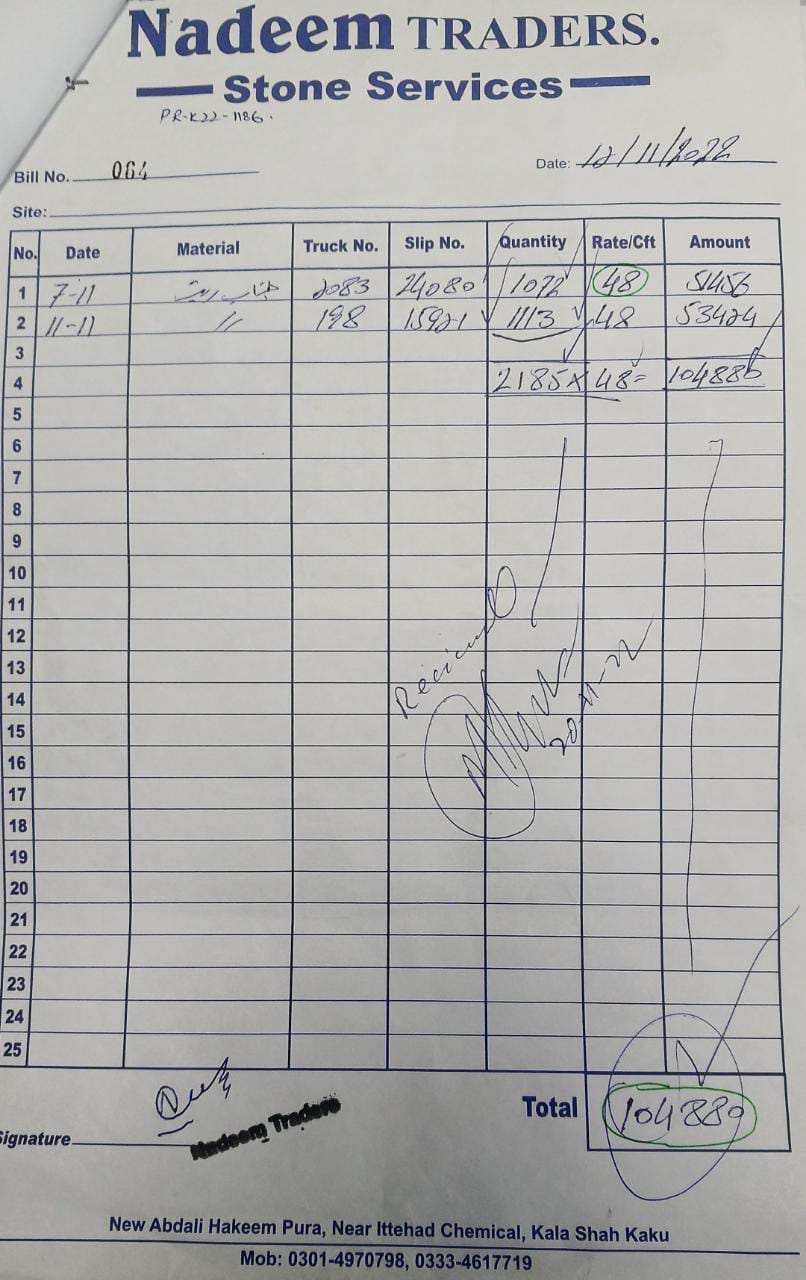 Nadeem TRADERS.
Stone Services
PR-K22-1186.
Bill No. 064
Date: 12/11/2022
Site:
No. Date Material Truck No. Slip No. Quantity Rate/Cft Amount
1 7-11 چناب ریت 2083 24080 1072 48 51456
2 11-11 // 198 15921 1113 48 53424
3
4 2185 x 48= 104880
5
6
7
8
9
10
11
12
13
14
15
16
17
18
19
20
21
22
23
24
25
Recieved
20-11-22
Total 104880
Signature
Nadeem Traders
New Abdali Hakeem Pura, Near Ittehad Chemical, Kala Shah Kaku
Mob: 0301-4970798, 0333-4617719